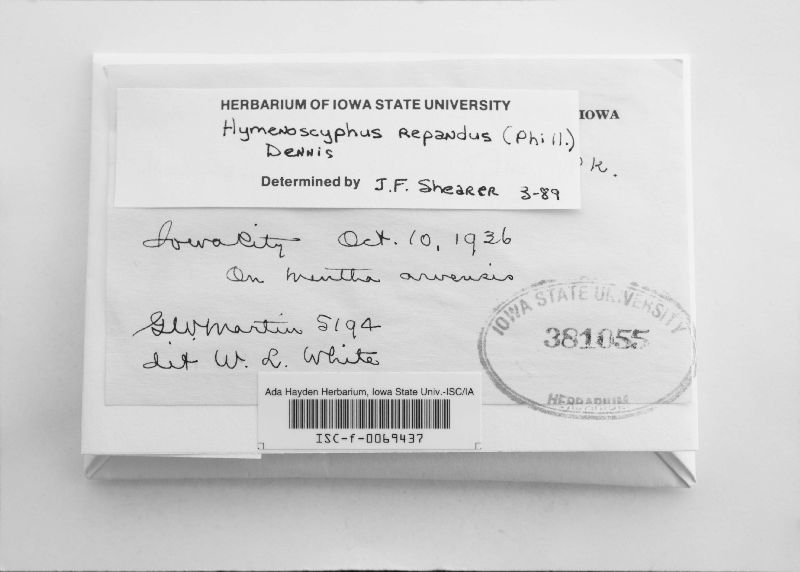 HERBARIUM OF IOWA STATE UNIVERSITY
IOWA
Hymenoscyphus repandus (Phill.)
Dennis
k.
Determined by J.F. Shearer 3-89
Iowa City Oct. 10, 1936
On Mentha arvensis
G.W. Martin 5194
det W. L. White
IOWA STATE UNIVERSITY
381055
HERBARIUM
Ada Hayden Herbarium, Iowa State Univ.-ISC/IA
ISC-f-0069437